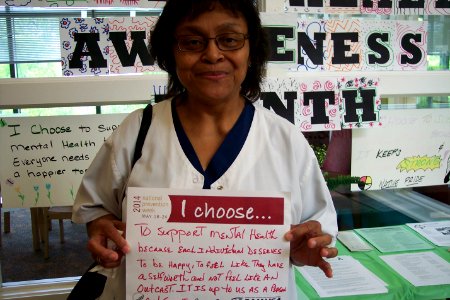 AWARENESS
NTH
I Choose to Sup
mental Health
Everyone needs
a happier to
KEEPS
STRONG
NATIVE PRIDE
2014
national prevention week
MAY 18-24
I choose...
TO SUPPORT MENTAL HEALTH
BECAUSE EACH INDIVIDUAL DESERVES
TO BE HAPPY, TO FEEL LIKE THEY HAVE
A SELFWORTH AND NOT FEEL LIKE AN
OUTCAST. IT IS UP TO US AS A